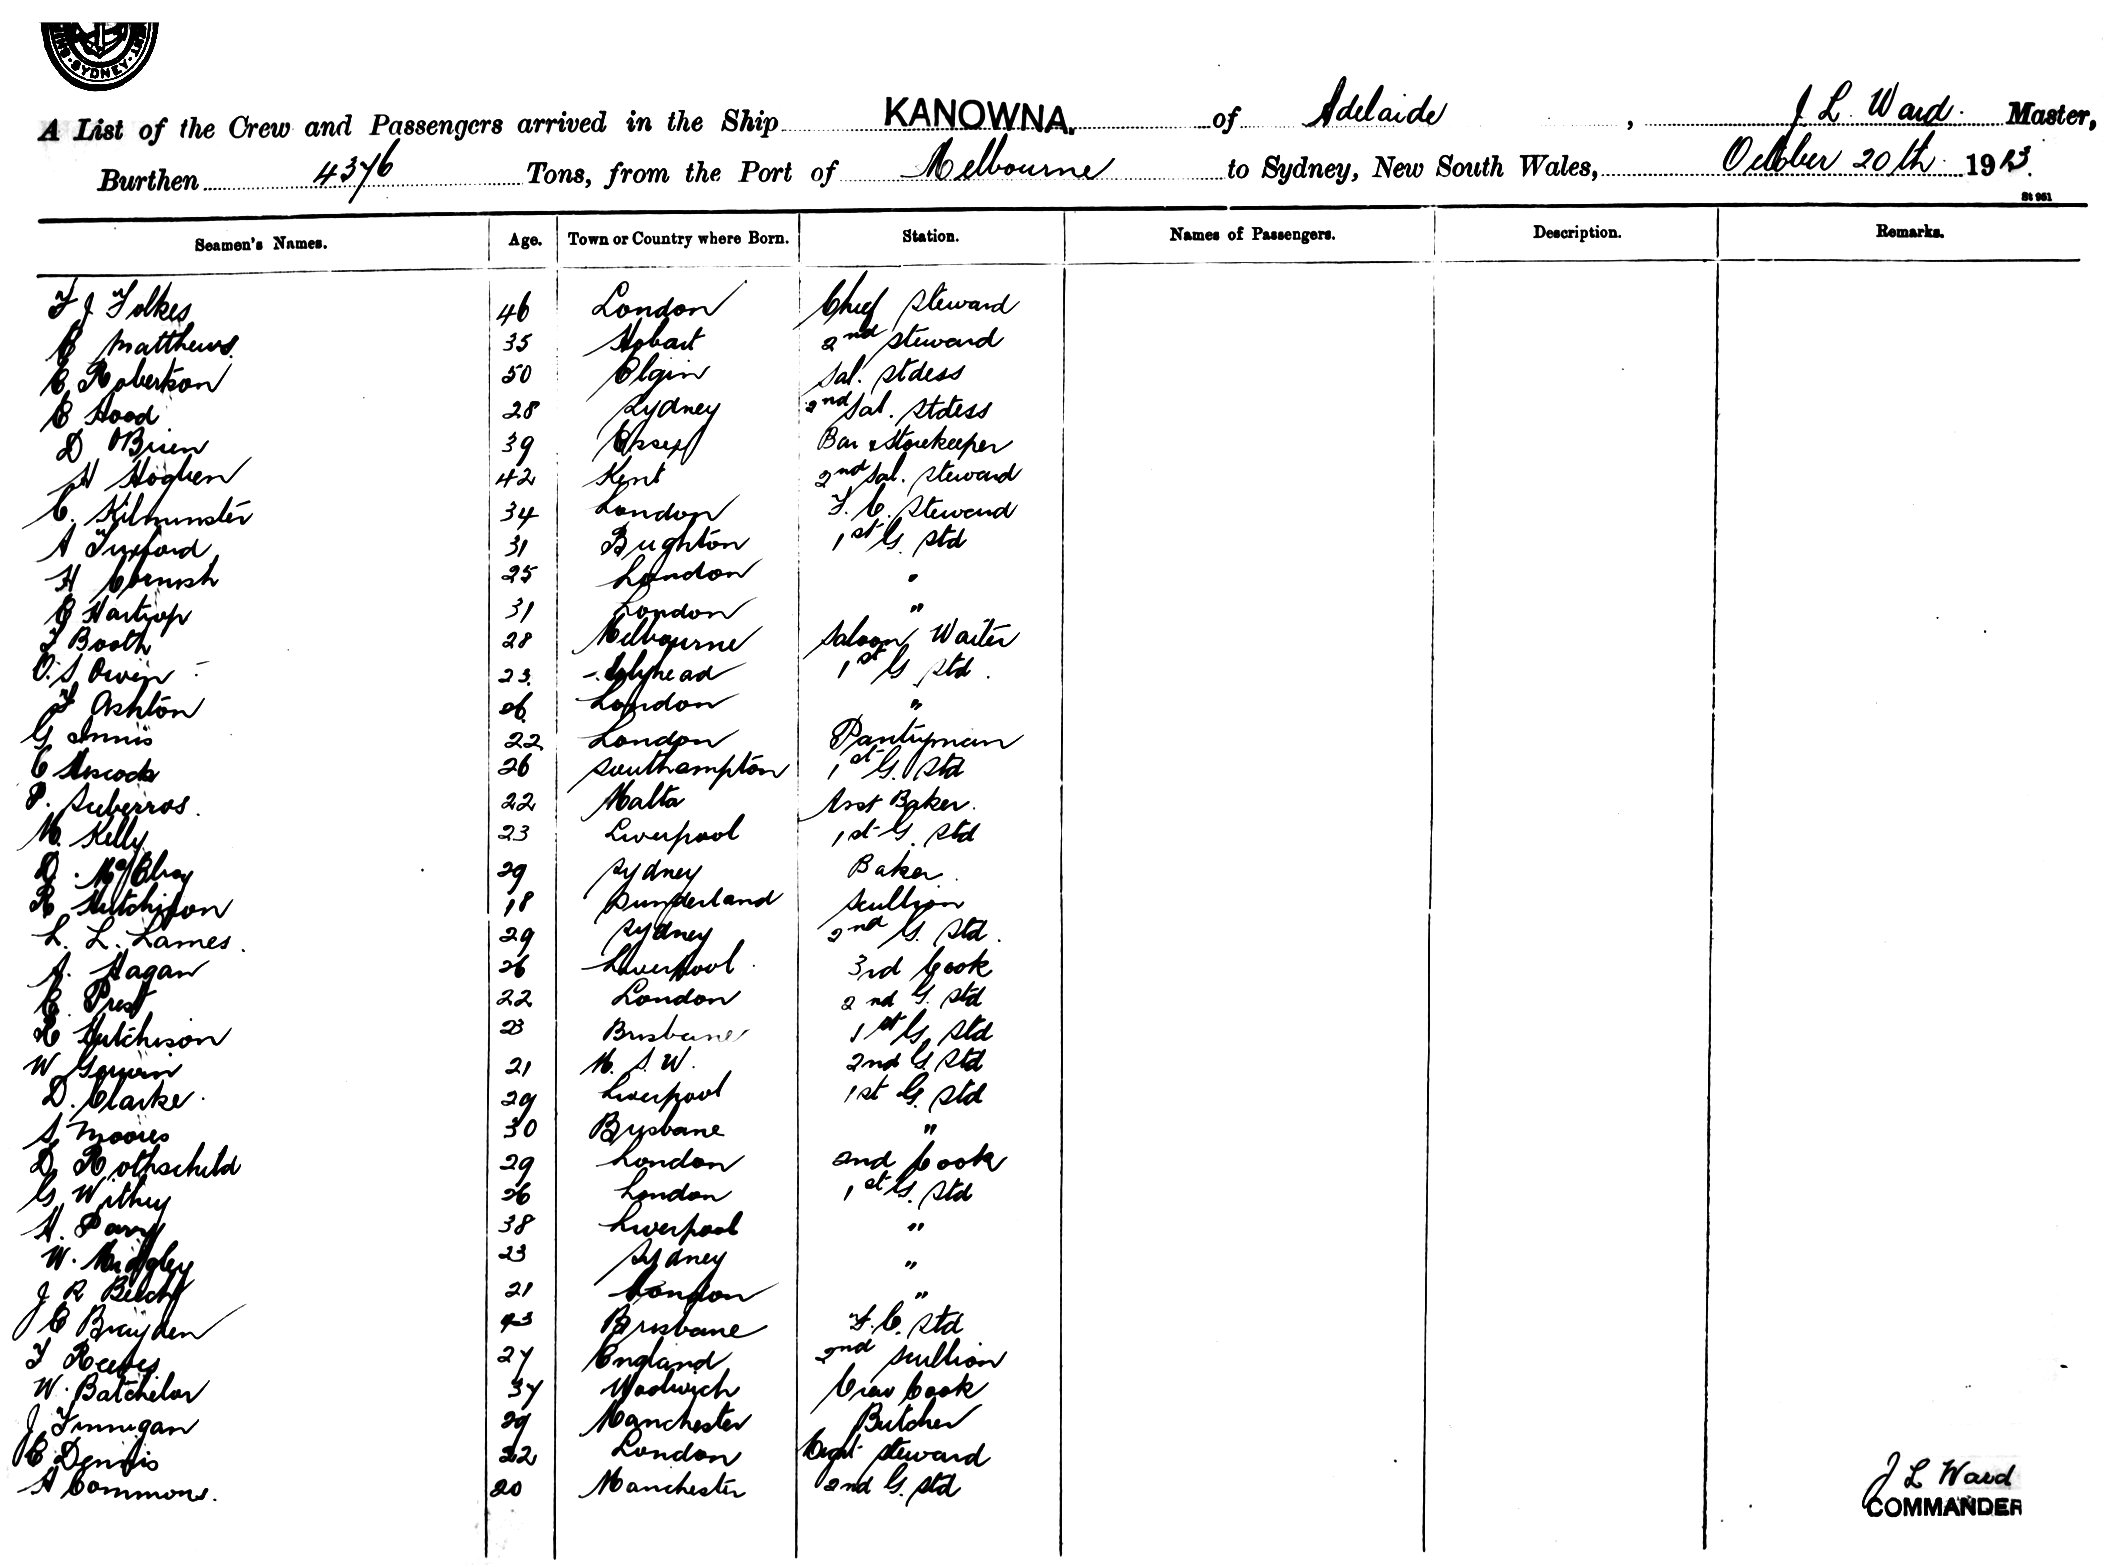 SYDNEY
A List of the Crew and Passengers arrived in the Ship KANOWNA. of Adelaide, J L Ward. Master,
Burthen 4376 Tons, from the Port of Melbourne to Sydney, New South Wales, October 20th 1913.
St 961
Seamen's Names. Age. Town or Country where Born. Station. Names of Passengers. Description. Remarks.
F J Folkes 46 London Chief Steward
C Matthews. 35 Hobart 2nd Steward
C Robertson 50 Elgin Sal. Stdess
C Hood 28 Sydney 2nd Sal. Stdess
D O'Brien 39 Essex Bar & Storekeeper
H Hogben 42 Kent 2nd Sal. Steward
C. Kilminster 34 London F. C. Steward
A Tuxford 31 Brighton 1st G. Std
H Cornish 25 London "
C Hartrop 31 London "
F Booth 28 Melbourne Saloon Waiter
O. S. Owen 23. Holyhead 1st G Std.
F Ashton 26 London "
G Innis 22 London Pantryman
C Hiscock 26 Southampton 1st G. Std
P. Suberras. 22 Malta Asst Baker.
M. Kelly 23 Liverpool 1st G. Std
D. McElroy 29 Sydney Baker.
R Hutchison 18 Sunderland Scullion
L. L. Lames. 29 Sydney 2nd G. Std.
J. Hagan 26 Liverpool. 3rd Cook
C. Prest 22 London 2nd G. Std
R Hutchison 23 Brisbane 1st G. Std
W 21 N. S. W. 2nd G Std
D. Clarke. 29 Liverpool 1st G. Std
S Moores 30 Brisbane "
D Rothschild 29 London 2nd Cook
G Withey 26 London 1st G. Std
H. Parry 38 Liverpool "
W. Midgley 23 Sydney "
J R Beech 21 London "
C Brayden 43 Brisbane F. C. Std
F Reeves 27 England 2nd Scullion
W. Batchelor 37 Woolwich Crew Cook
J Finnigan 29 Manchester Butcher
C Dennis 22 London Night Steward
H Commons. 20 Manchester 2nd G. Std
J L Ward
COMMANDER